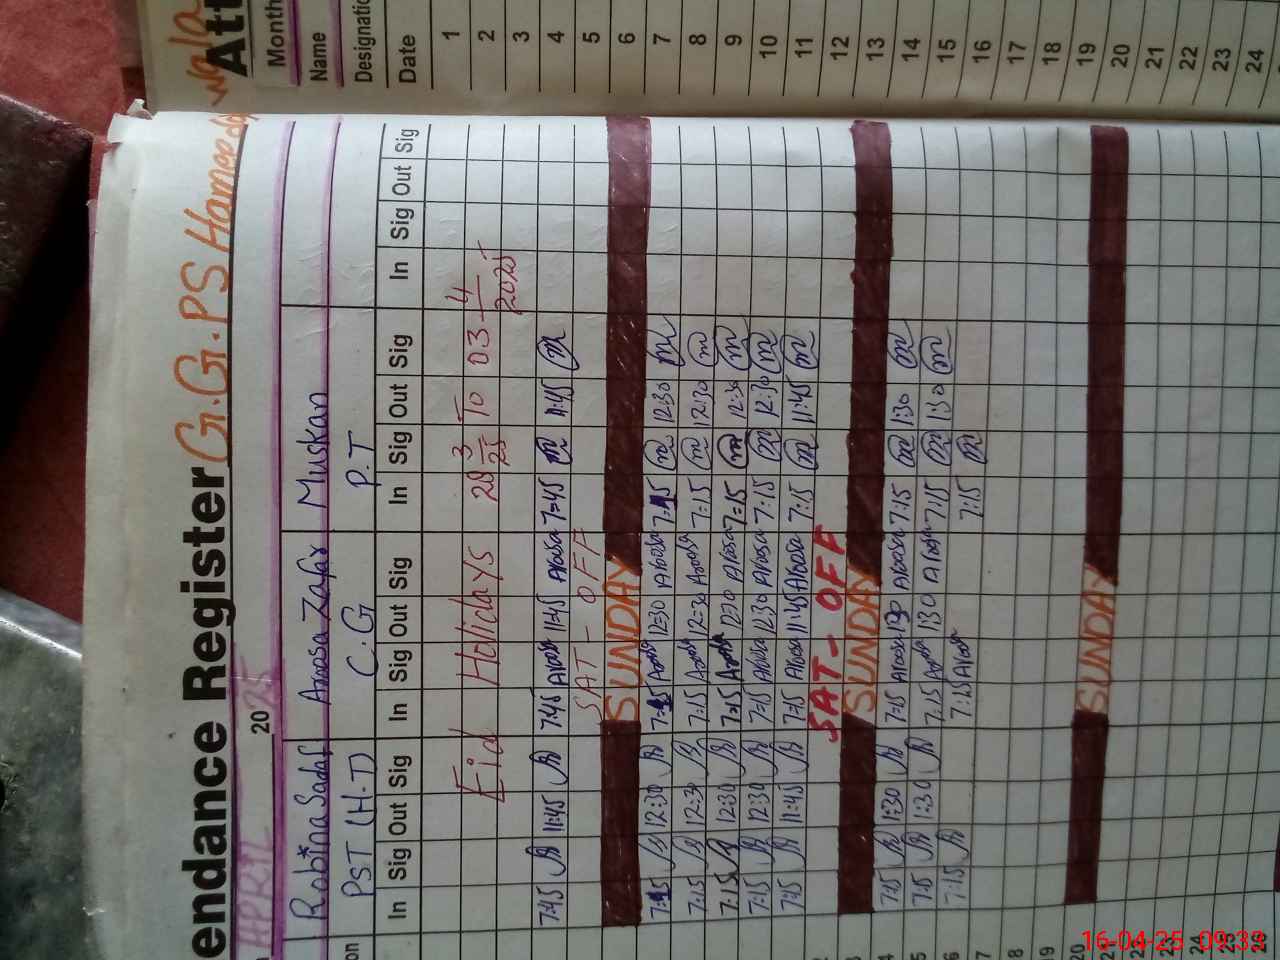 endance Register G.G.PS Hamood
wala
APRIL 2025
Robina Sadaf Amosa Zafar Muskan
on PST (H-T) C.G P.T
In Sig Out Sig In Sig Out Sig In Sig Out Sig In Sig Out Sig
Eid Holidays 28 3/25 To 03 4/2025
7:45 11:45 7:45 11:45 7=45 11:45
SAT - OFF
SUNDAY
7=15 12:30 7=15 12=30 7=15 12:30
7:15 12:30 7:15 12=30 7=15 12:30
7:15 12:30 7:15 12=30 7=15 12:30
7:15 12:30 7=15 12:30 7:15 12:30
7:15 11:45 7=15 11:45 7:15 11:45
SAT - OFF
SUNDAY
14 7:15 1:30 7=15 1:30 7:15 1:30
15 7:15 1:30 7:15 1:30 7:15 1:30
16 7:15 7:15 7:15
17
18
19
20 SUNDAY
21
22
23
24
25
26
Att
Month
Name
Designati
Date
1
2
3
4
5
6
7
8
9
10
11
12
13
14
15
16
17
18
19
20
21
22
23
24
16-04-25 09:32